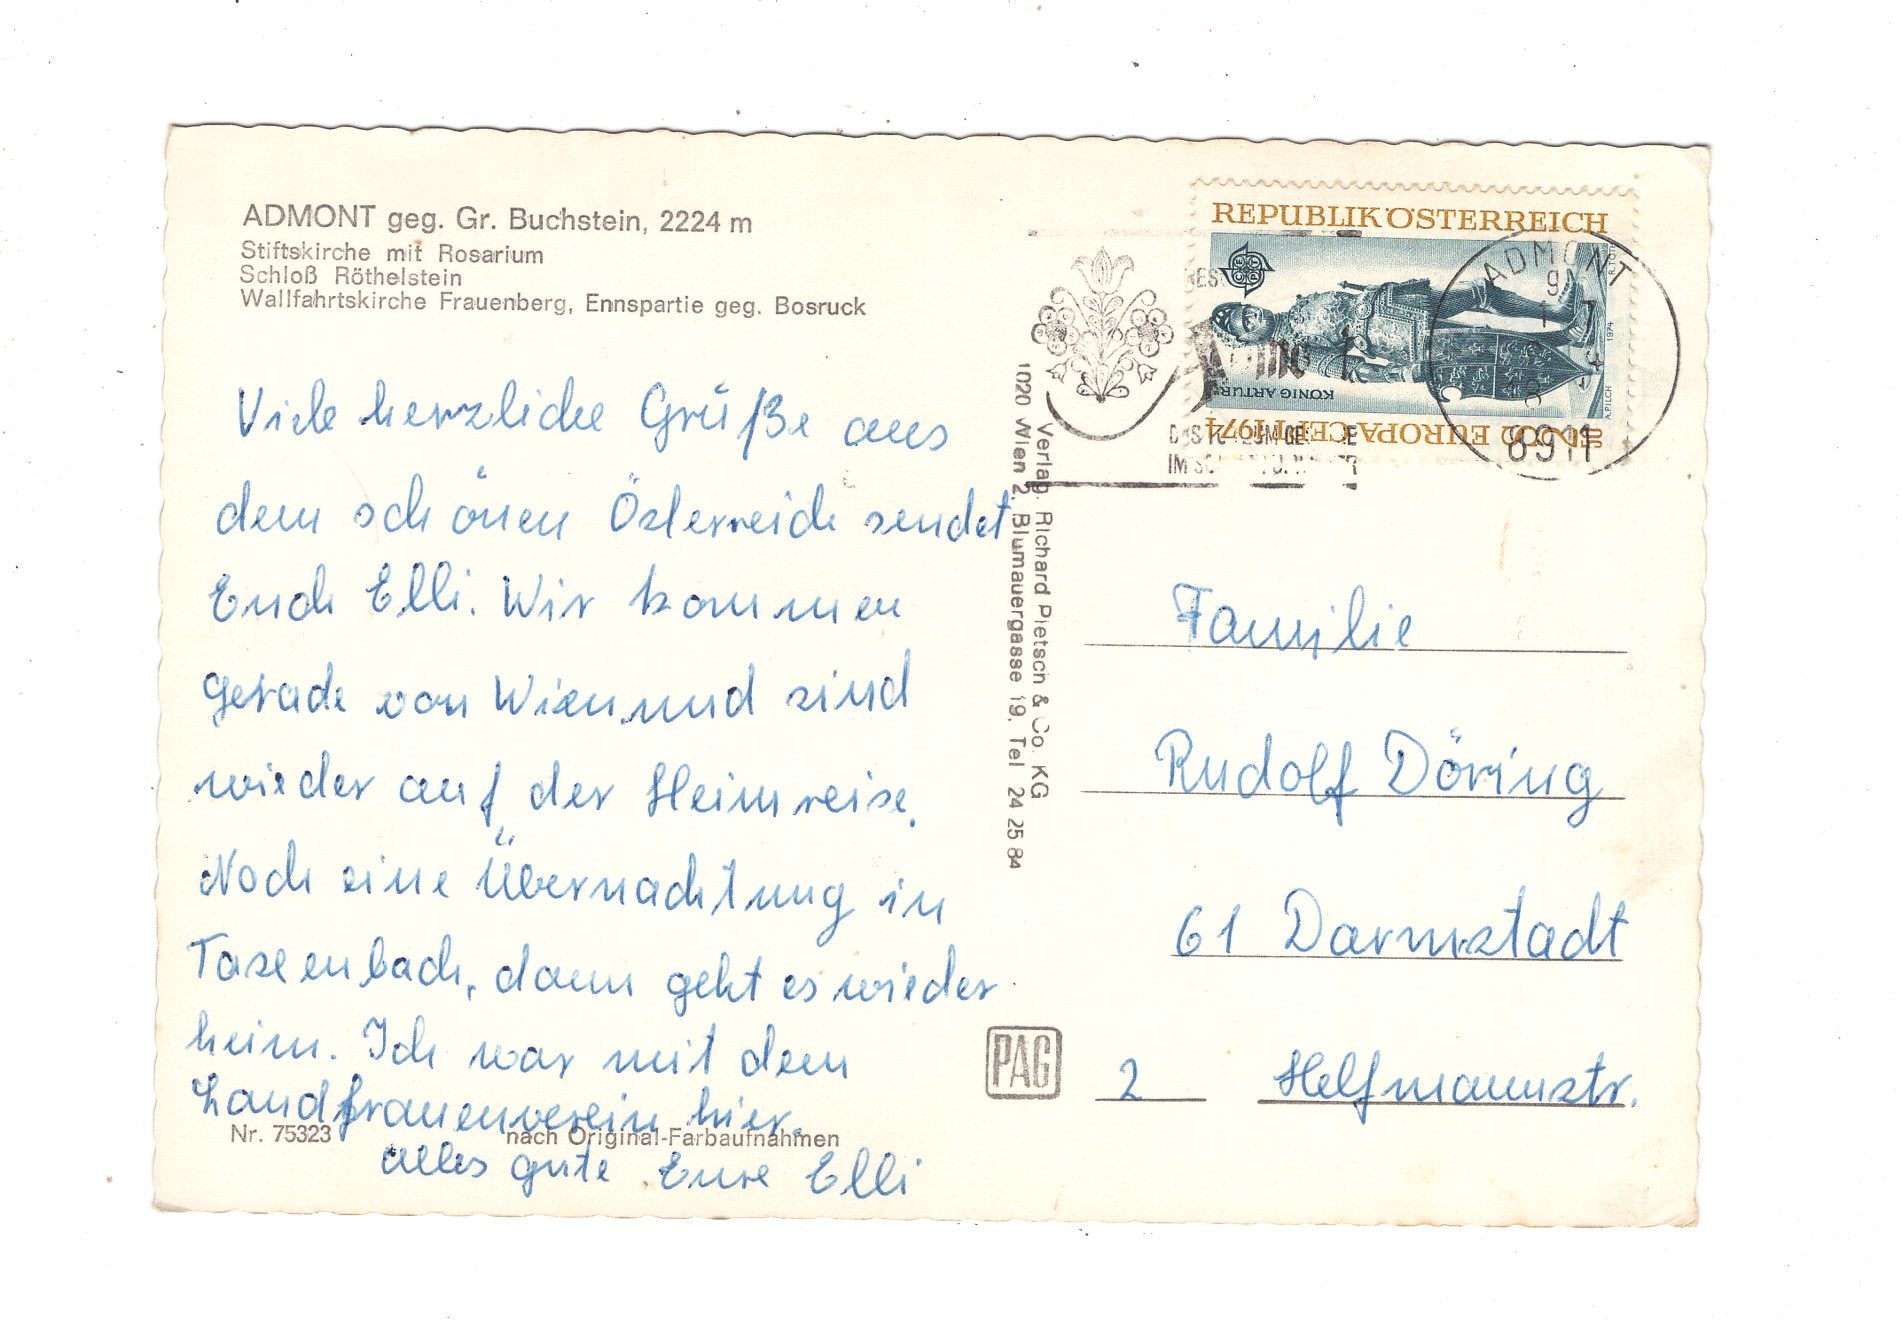 ADMONT geg. Gr. Buchstein, 2224 m
Stiftskirche mit Rosarium
Schloß Röthelstein
Wallfahrtskirche Frauenberg, Ennspartie geg. Bosruck
Viele herzliche Grüße aus
dem schönen Österreich sendet
Euch Elli. Wir kommen
gerade von Wien und sind
wieder auf der Heimreise.
Noch eine Übernachtung in
Taxenbach, dann geht es wieder
heim. Ich war mit dem
Landfrauenverein hier.
Nr. 75323 nach Original-Farbaufnahmen
alles gute Eure Elli
Verlag: Richard Pietsch & Co. KG
1020 Wien 2, Blumauergasse 19, Tel. 24 25 84
PAG
REPUBLIK ÖSTERREICH
KÖNIG ARTUR
EUROPA CEPT 1974
A. PILCH
1974
ADMONT
8911
Familie
Rudolf Döring
61 Darmstadt
2 Helfmannstr.